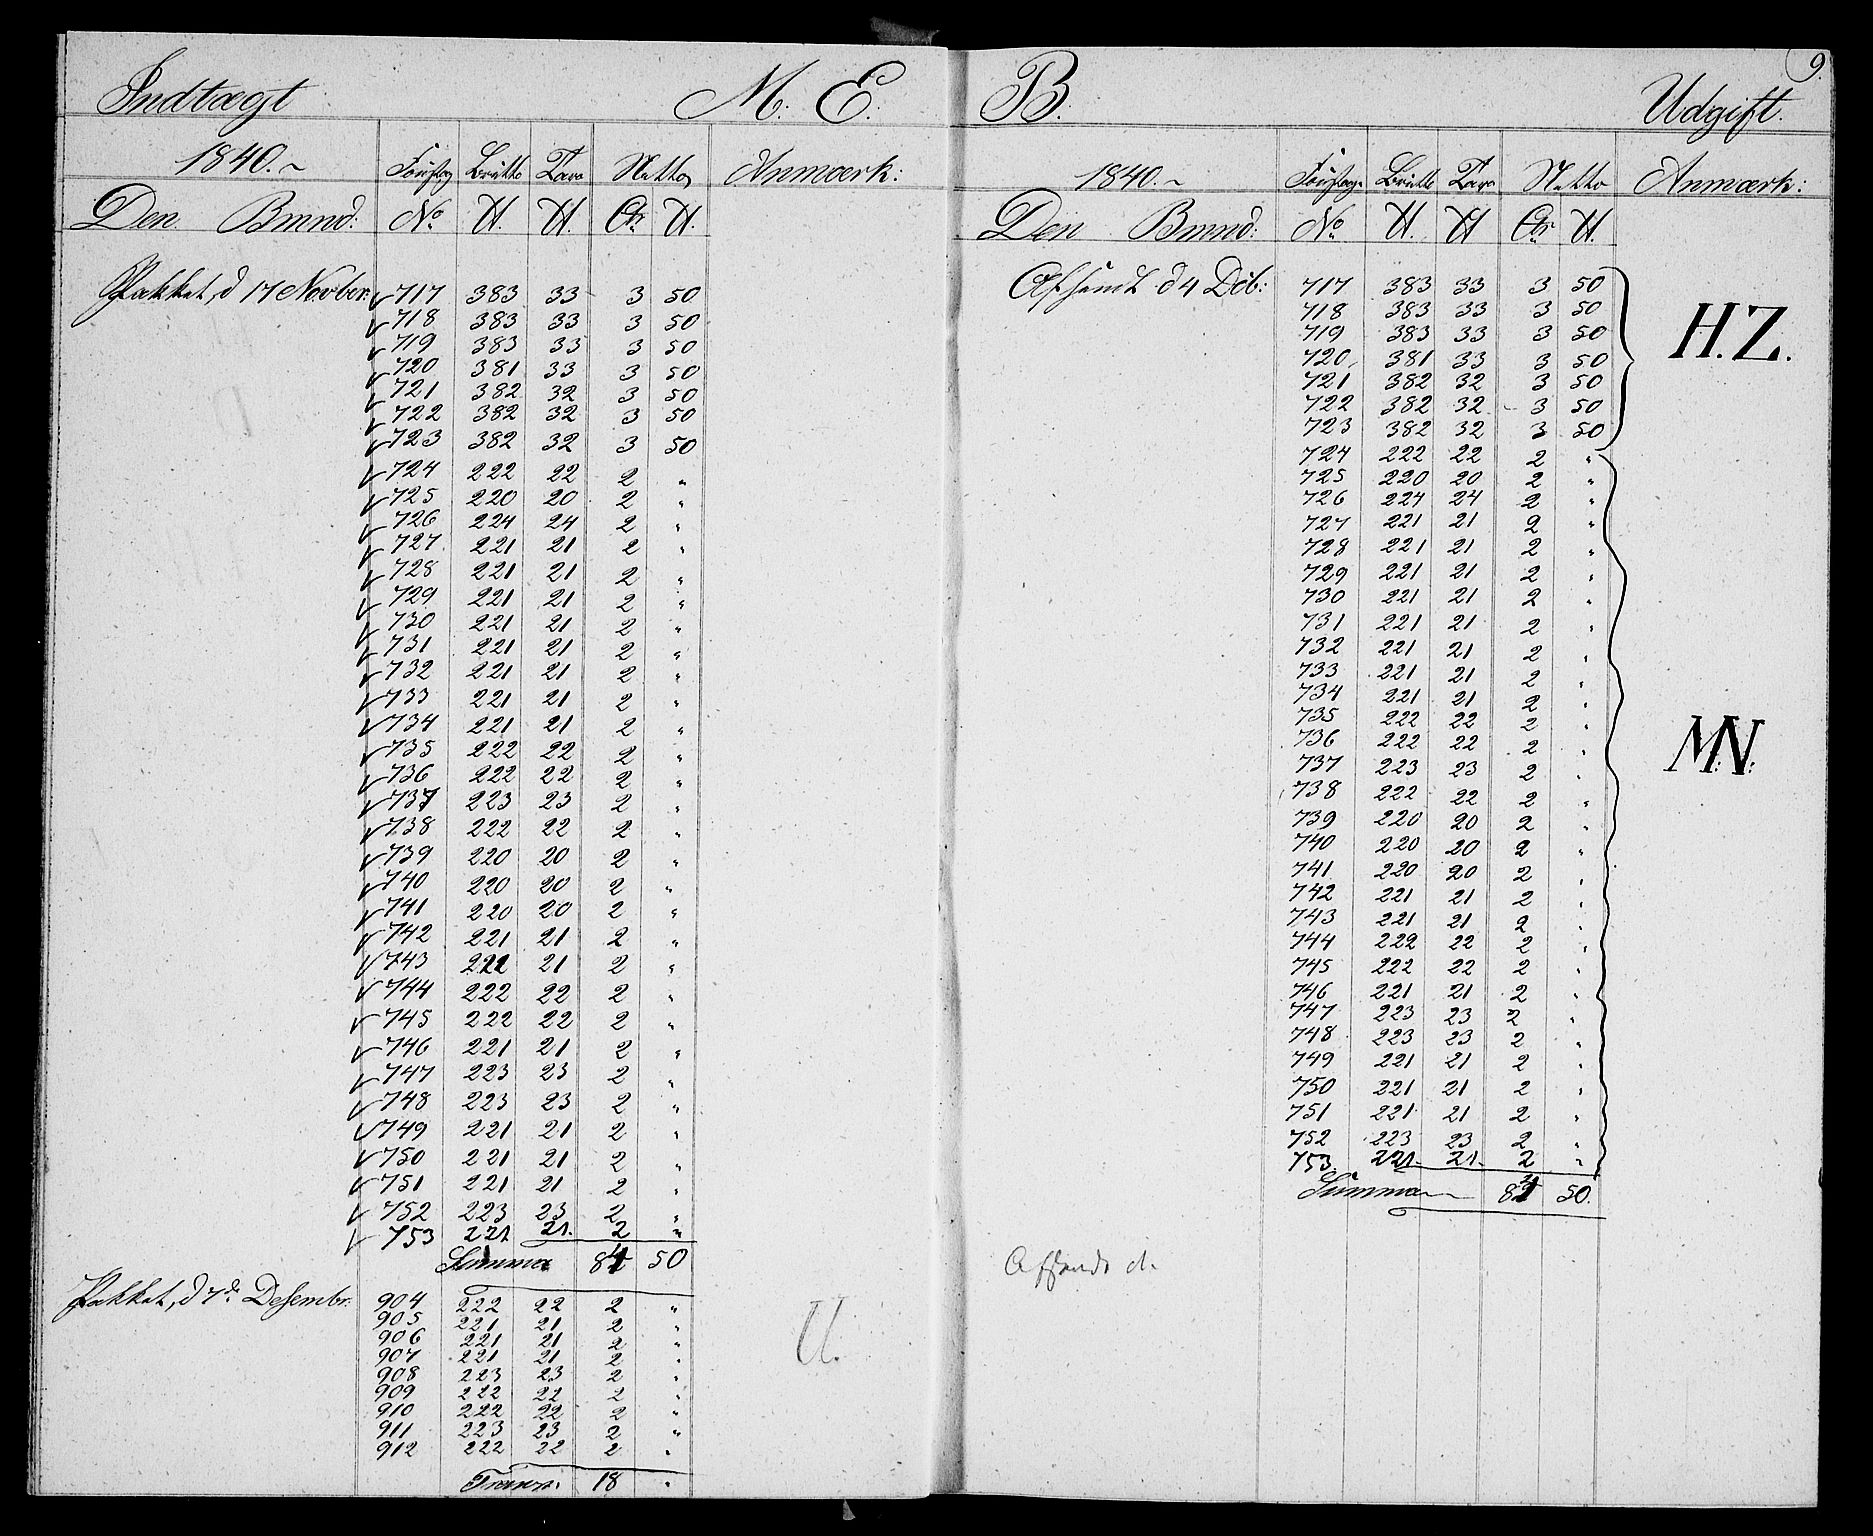 Indtægt M. E.
1840. Fustag Brutto Tara Netto Anmærk:
Den Bmnd: No. ℔. ℔. Ctr ℔.
Pakket, d 17 Novbor: 717 383 33 3 50
718 383 33 3 50
719 383 33 3 50
720 381 33 3 50
721 382 32 3 50
722 382 32 3 50
723 382 32 3 50
724 222 22 2 "
725 220 20 2 "
726 224 24 2 "
727 221 21 2 "
728 221 21 2 "
729 221 21 2 "
730 221 21 2 "
731 221 21 2 "
732 221 21 2 "
733 221 21 2 "
734 221 21 2 "
735 222 22 2 "
736 222 22 2 "
737 223 23 2 "
738 222 22 2 "
739 220 20 2 "
740 220 20 2 "
741 220 20 2 "
742 221 21 2 "
743 221 21 2 "
744 222 22 2 "
745 222 22 2 "
746 221 21 2 "
747 223 23 2 "
748 223 23 2 "
749 221 21 2 "
750 221 21 2 "
751 221 21 2 "
752 223 23 2 "
753 221 21. 2 "
Summa 84 50
Pakket, d 7de Desembr: 904 222 22 2 "
905 221 21 2 "
906 221 21 2 "
907 221 21 2 "
908 223 23 2 "
909 222 22 2 "
910 222 22 2 "
911 223 23 2 "
912 222 22 2 "
Transp. 18 "
U.
9.
B. Udgift.
1840. Fustag. Brutto Tara Netto Anmærk:
Den Bmnd: No. ℔. ℔ Ctr ℔.
Afsendt d 4 Dcb: 717 383 33 3 50
718 383 33 3 50
719 383 33 3 50
720 381 33 3 50
721 382 32 3 50
722 382 32 3 50
723 382 32 3 50
H.Z.
724 222 22 2 "
725 220 20 2 "
726 224 24 2 "
727 221 21 2 "
728 221 21 2 "
729 221 21 2 "
730 221 21 2 "
731 221 21 2 "
732 221 21 2 "
733 221 21 2 "
734 221 21 2 "
735 222 22 2 "
736 222 22 2 "
737 223 23 2 "
738 222 22 2 "
739 220 20 2 "
740 220 20 2 "
741 220 20 2 "
742 221 21 2 "
743 221 21 2 "
744 222 22 2 "
745 222 22 2 "
746 221 21 2 "
747 223 23 2 "
748 223 23 2 "
749 221 21 2 "
750 221 21 2 "
751 221 21 2 "
752 223 23 2 "
753. 221. 21. 2 "
M:N:
Summa 84 50.
Afsendt d.